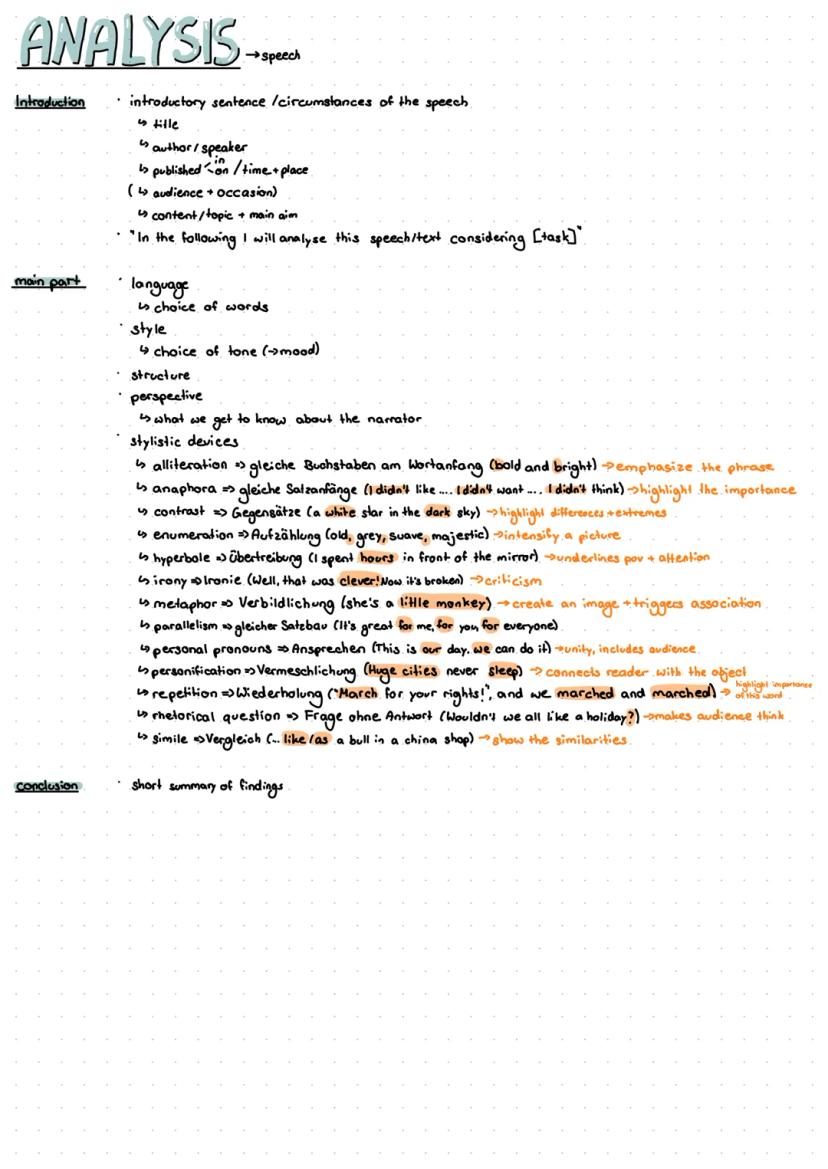 ANALYSIS → speech
Introduction · introductory sentence / circumstances of the speech
↳ title
↳ author / speaker
↳ published < in on / time + place
(↳ audience + occasion)
↳ content / topic + main aim
· "In the following I will analyse this speech/text considering [task]"
main part · language
↳ choice of words
· style
↳ choice of tone (→ mood)
· structure
· perspective
↳ what we get to know about the narrator
· stylistic devices
↳ alliteration => gleiche Buchstaben am Wortanfang (bold and bright) → emphasize the phrase
↳ anaphora => gleiche Satzanfänge (I didn't like .... I didn't want .... I didn't think) → highlight the importance
↳ contrast => Gegensätze (a white star in the dark sky) → highlight differences + extremes
↳ enumeration => Aufzählung (old, grey, suave, majestic) → intensify a picture
↳ hyperbole => Übertreibung (I spent hours in front of the mirror) → underlines pov + attention
↳ irony => Ironie (Well, that was clever! Now it's broken) → criticism
↳ metaphor => Verbildlichung (she's a little monkey) → create an image + triggers association
↳ parallelism => gleicher Satzbau (It's great for me, for you, for everyone)
↳ personal pronouns => Ansprechen (This is our day. we can do it) → unity, includes audience
↳ personification => Vermeschlichung (Huge cities never sleep) → connects reader with the object
↳ repetition => Wiederholung ("March for your rights!", and we marched and marched) → highlight importance of this word
↳ rhetorical question => Frage ohne Antwort (Wouldn't we all like a holiday?) → makes audience think
↳ simile => Vergleich (... like / as a bull in a china shop) → show the similarities
conclusion · short summary of findings